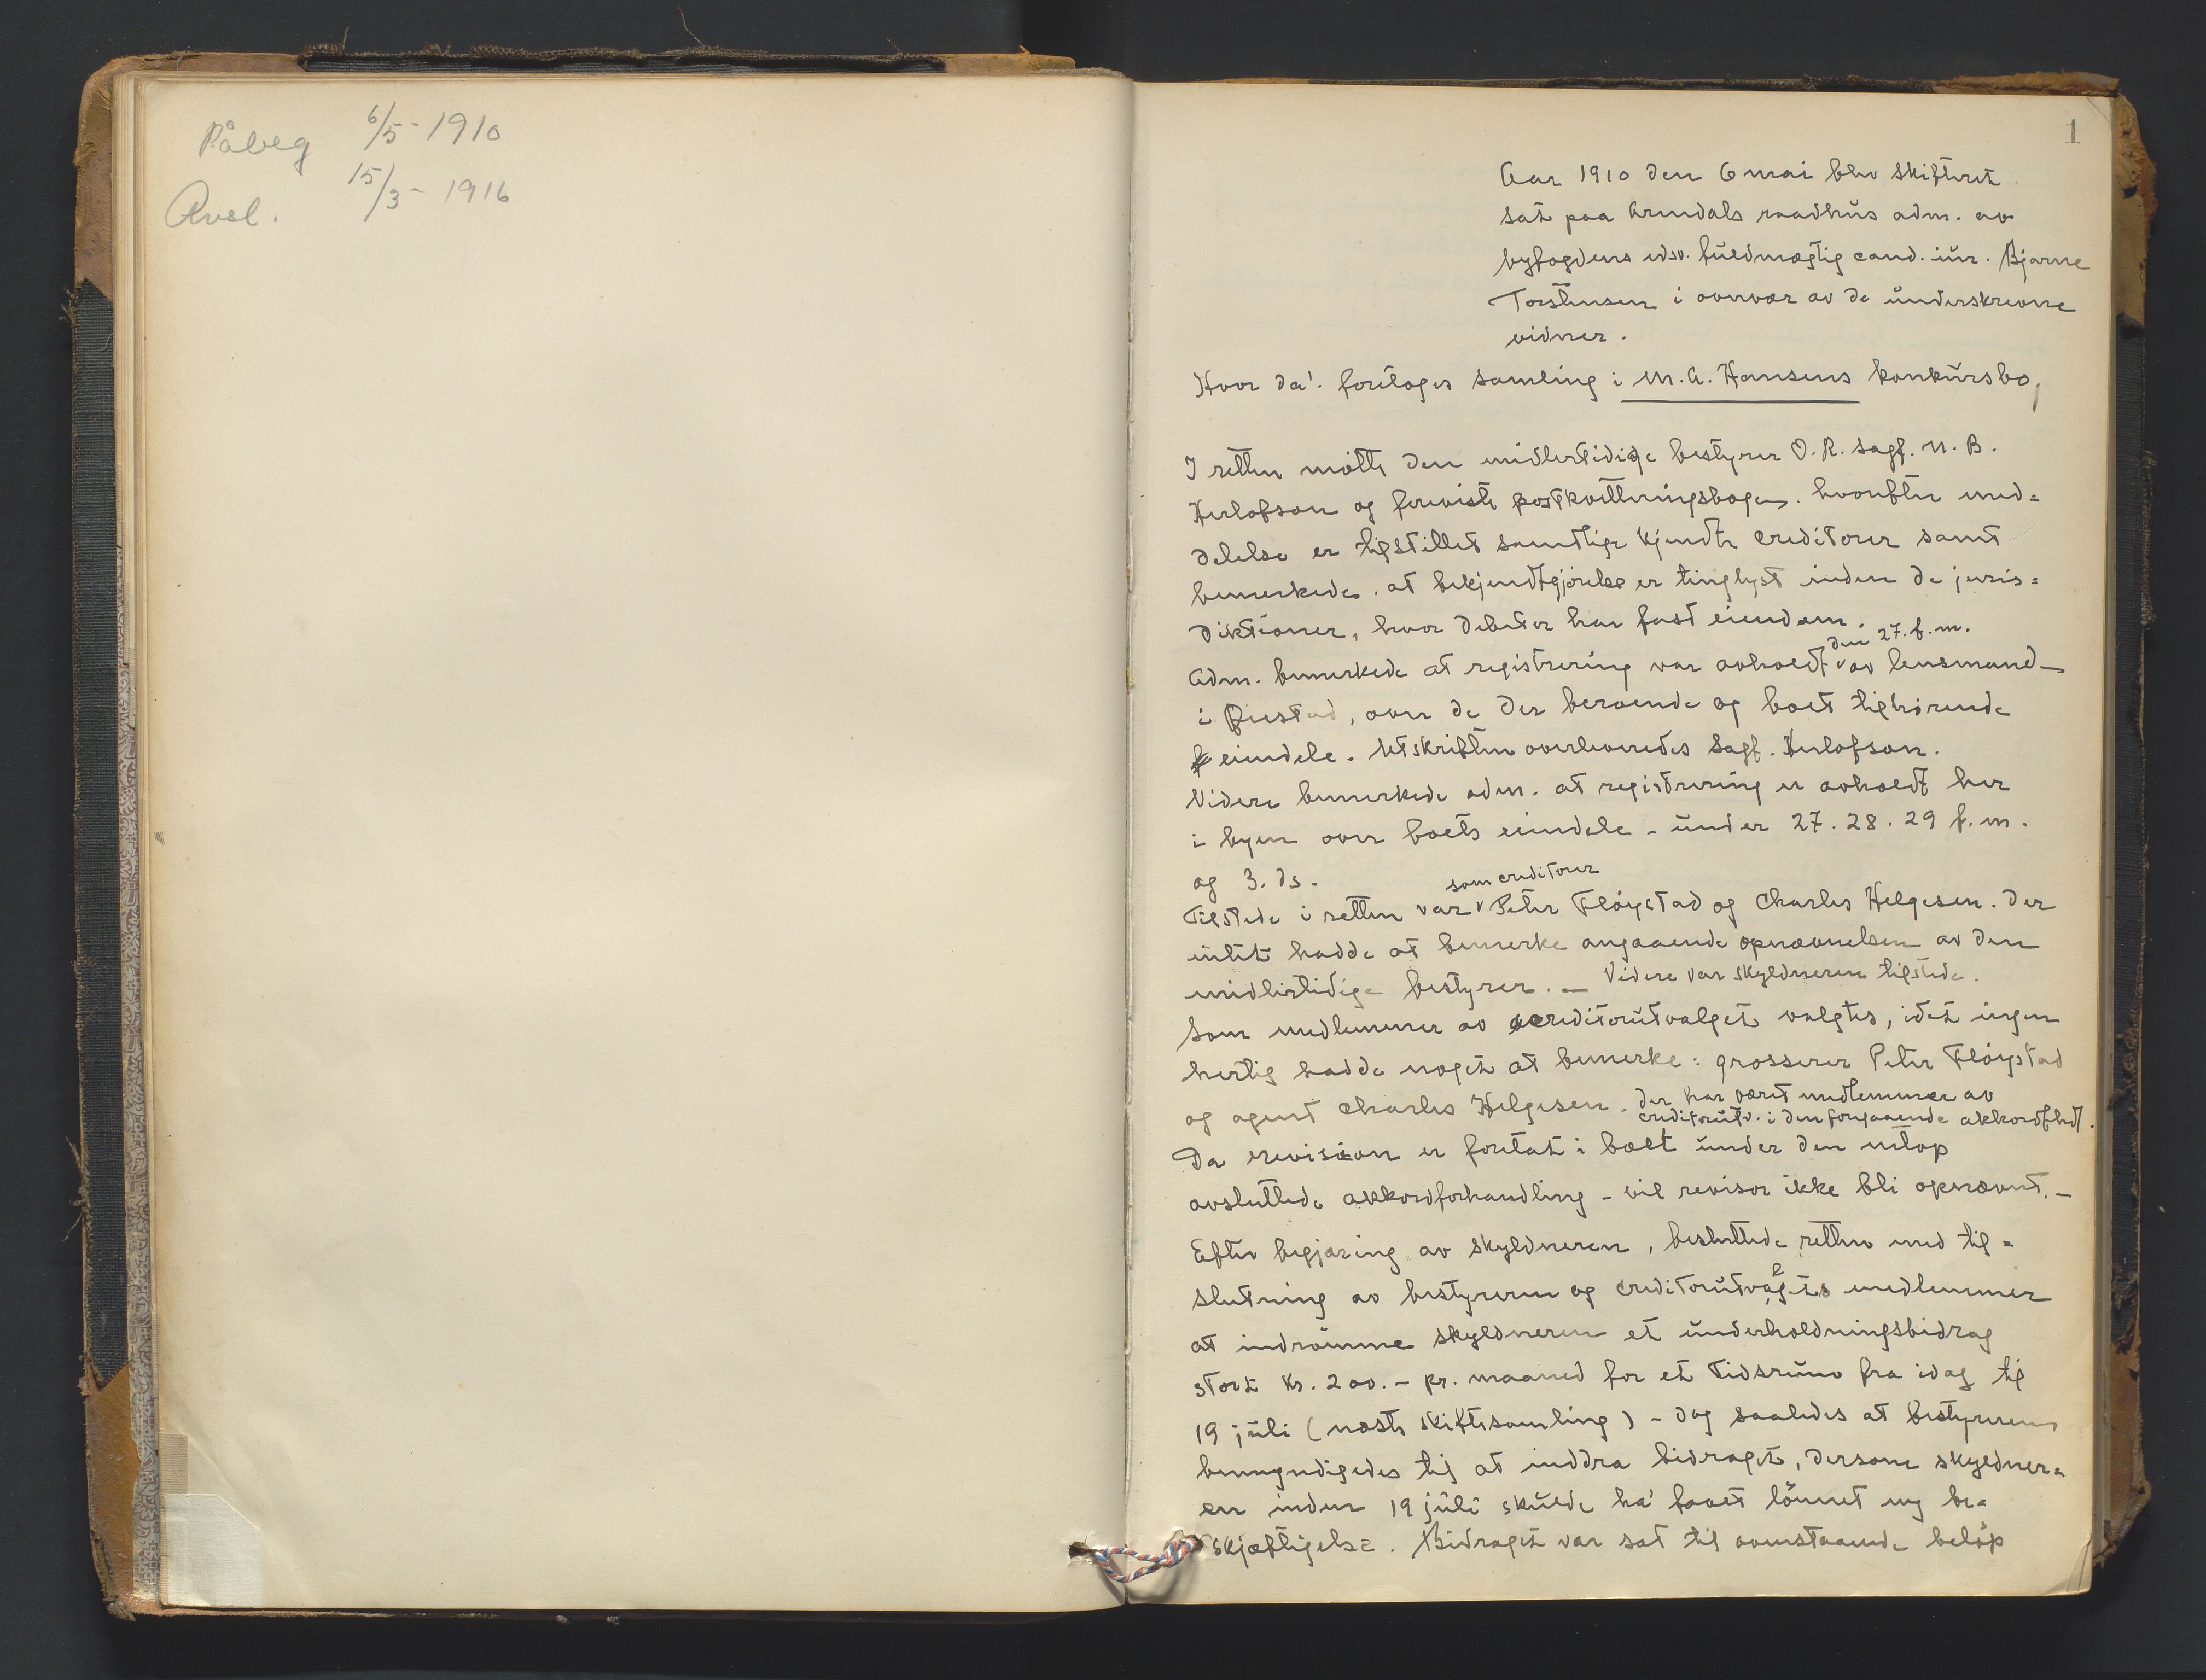 Påbeg 6/5 - 1910
Avsl. 15/3 - 1916
1
Aar 1910 den 6 mai blev skifteret
sat paa Arendals raadhus adm. av
byfogdens edsv. fuldmægtig cand. iur. Bjarne
Torstensen i overvær av de underskrevne
vidner.
Hvor da! foretoges samling i M. A. Hansens konkursbo,
I retten møtte den midlertidige bestyrer O. R. sagf. N. B.
Herlofson og foreviste postkvitteringsbogen. hvorefter med=
delelse er tilstillet samtlige kjendte creditorer samt
bemerkede. at bekjendtgjørelse er tinglyst inden de juris=
diktioner, hvor debitor har fast eiendom.
den 27. f. m.
Adm. bemerkede at registrering var avholdt av lensmand
i , over de der beroende og boet tilhørende
eiendele. Utskriften overleveredes sagf. Herlofson.
Videre bemerkede adm. at registrering er avholdt her
i byen over boets eiendele - under 27. 28. 29 f. m.
og 3. ds.
som creditorer
Tilstede i retten var Peter Fløystad og Charles Helgesen. der
intet hadde at bemerke angaaende opnævnelsen av den
midlertidige bestyrer. - Videre var skyldneren tilstede.
Som medlemmer av creditorutvalget valgtes, idet ingen
hertil hadde noget at bemerke: grosserer Peter Fløystad
og agent Charles Helgesen. der har været medlemmer av
creditorutv. i den forgaaende akkordfhdl.
Da revision er foretat i boet under den nilop
avsluttede akkordforhandling - vil revisor ikke bli opnævnt. -
Efter begjæring av skyldneren, besluttede retten med til=
slutning av bestyreren og creditorutvalgets medlemmer
at indrømme skyldneren et underholdningsbidrag
stort kr. 200. - pr. maaned for et tidsrum fra idag til
19 juli (næste skiftesamling) - dog saaledes at bestyreren
bemyndigedes til at inddra bidraget, dersom skyldner=
en inden 19 juli skulde ha' faaet lønnet ny be=
skjæftigelse. Bidraget var sat til ovenstaaende beløp